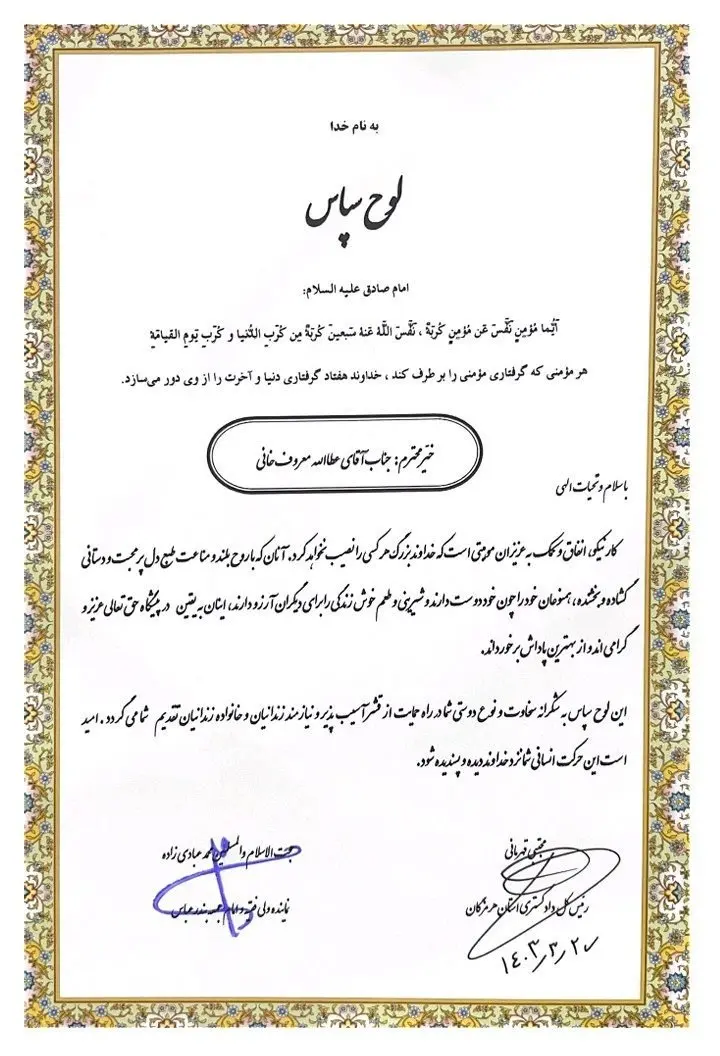 به نام خدا
لوح سپاس
امام صادق علیه السلام:
أیُّما مُؤمِنٍ نَفَّسَ عَن مُؤمِنٍ کُربَةً ، نَفَّسَ اللَّهُ عَنهُ سَبعینَ کُربَةً مِن کُرَبِ الدُّنیا و کُرَبِ یَومِ القیامَةِ
هر مؤمنی که گرفتاری مؤمنی را بر طرف کند ، خداوند هفتاد گرفتاری دنیا و آخرت را از وی دور می‌سازد.
خیّر محترم: جناب آقای عطاالله معروف خانی
باسلام و تحیات الهی
کار نیکو، انفاق و کمک به عزیزان موهبتی است که خداوند بزرگ هر کسی را نصیب نخواهد کرد. آنان که با روح بلند و مناعت طبع دل پر محبت و دستانی
گشاده و بخشنده، همنوعان خود را چون خود دوست دارند و شیرینی و طعم خوش زندگی را برای دیگران آرزو دارند، اینان به یقین در پیشگاه حق تعالی عزیز و
گرامی اند و از بهترین پاداش برخوردارند.
این لوح سپاس به شکرانه سخاوت و نوع دوستی شما در راه حمایت از قشر آسیب پذیر و نیازمند زندانیان و خانواده زندانیان تقدیم شما می گردد . امید
است این حرکت انسانی شما نزد خداوند دیده و پسندیده شود.
مجتبی قهرمانی
رئیس کل دادگستری استان هرمزگان
۱۴۰۳/۳/۲۰
حجت الاسلام والمسلمین محمد عبادی زاده
نماینده ولی فقیه و امام جمعه بندرعباس